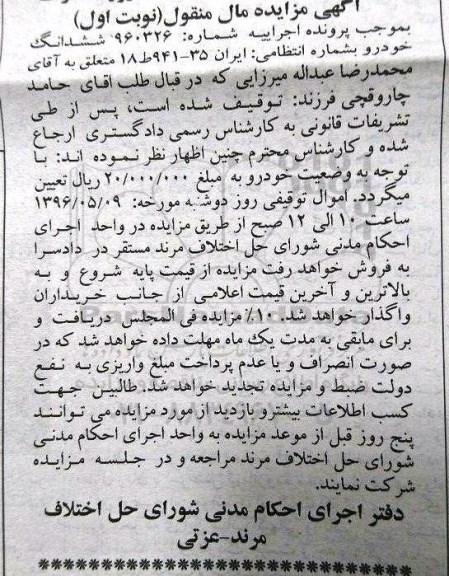 آگهی مزایده مال منقول(نوبت اول)
بموجب پرونده اجراییه شماره: ۹۶۰۳۲۶ ششدانگ
خودرو بشماره انتظامی: ایران ۳۵-۹۴۱ط۱۸ متعلق به آقای
محمدرضا عبداله میرزایی که در قبال طلب آقای حامد
چاروقچی فرزند: توقیف شده است، پس از طی
تشریفات قانونی به کارشناس رسمی دادگستری ارجاع
شده و کارشناس محترم چنین اظهار نظر نموده اند: با
توجه به وضعیت خودرو به مبلغ ۲۰/۰۰۰/۰۰۰ ریال تعیین
میگردد. اموال توقیفی روز دوشنبه مورخه: ۱۳۹۶/۰۵/۰۹
ساعت ۱۰ الی ۱۲ صبح از طریق مزایده در واحد اجرای
احکام مدنی شورای حل اختلاف مرند مستقر در دادسرا
به فروش خواهد رفت مزایده از قیمت پایه شروع و به
بالاترین و آخرین قیمت اعلامی از جانب خریداران
واگذار خواهد شد. ۱۰٪ مزایده فی المجلس دریافت و
برای مابقی به مدت یک ماه مهلت داده خواهد شد که در
صورت انصراف و یا عدم پرداخت مبلغ واریزی به نفع
دولت ضبط و مزایده تجدید خواهد شد. طالبین جهت
کسب اطلاعات بیشتر و بازدید از مورد مزایده می توانند
پنج روز قبل از موعد مزایده به واحد اجرای احکام مدنی
شورای حل اختلاف مرند مراجعه و در جلسه مزایده
شرکت نمایند.
دفتر اجرای احکام مدنی شورای حل اختلاف
مرند-عزتی